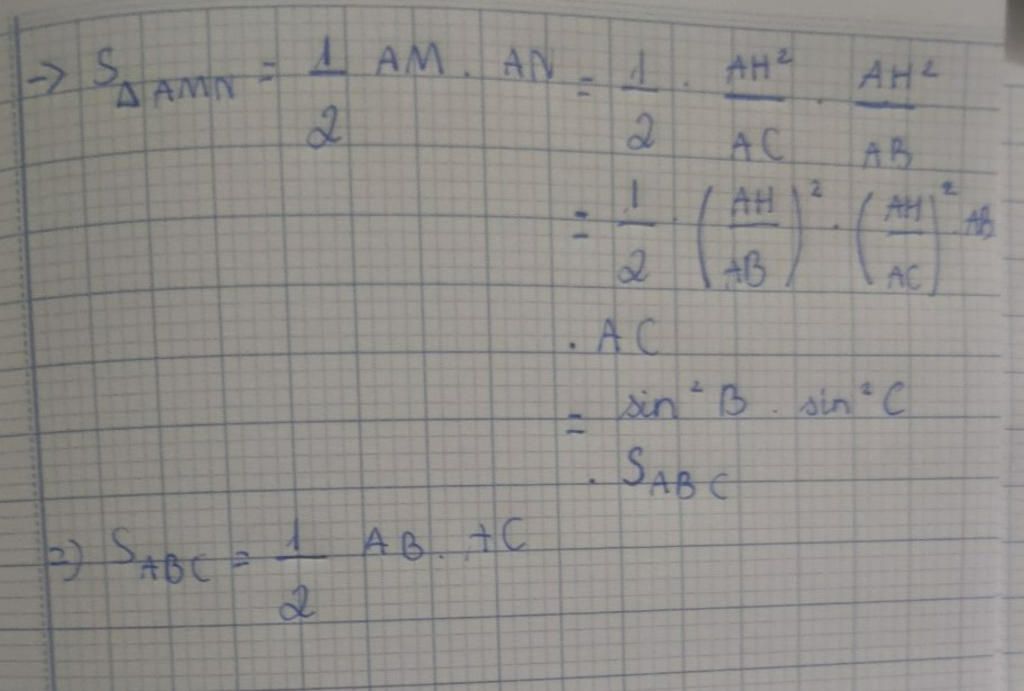 → S△AMN = 1/2 AM . AN = 1/2 . AH²/AC . AH²/AB
= 1/2 . (AH/AB)² . (AH/AC)² . AB
. AC
= sin²B . sin²C
. SABC
=> SABC = 1/2 AB . AC